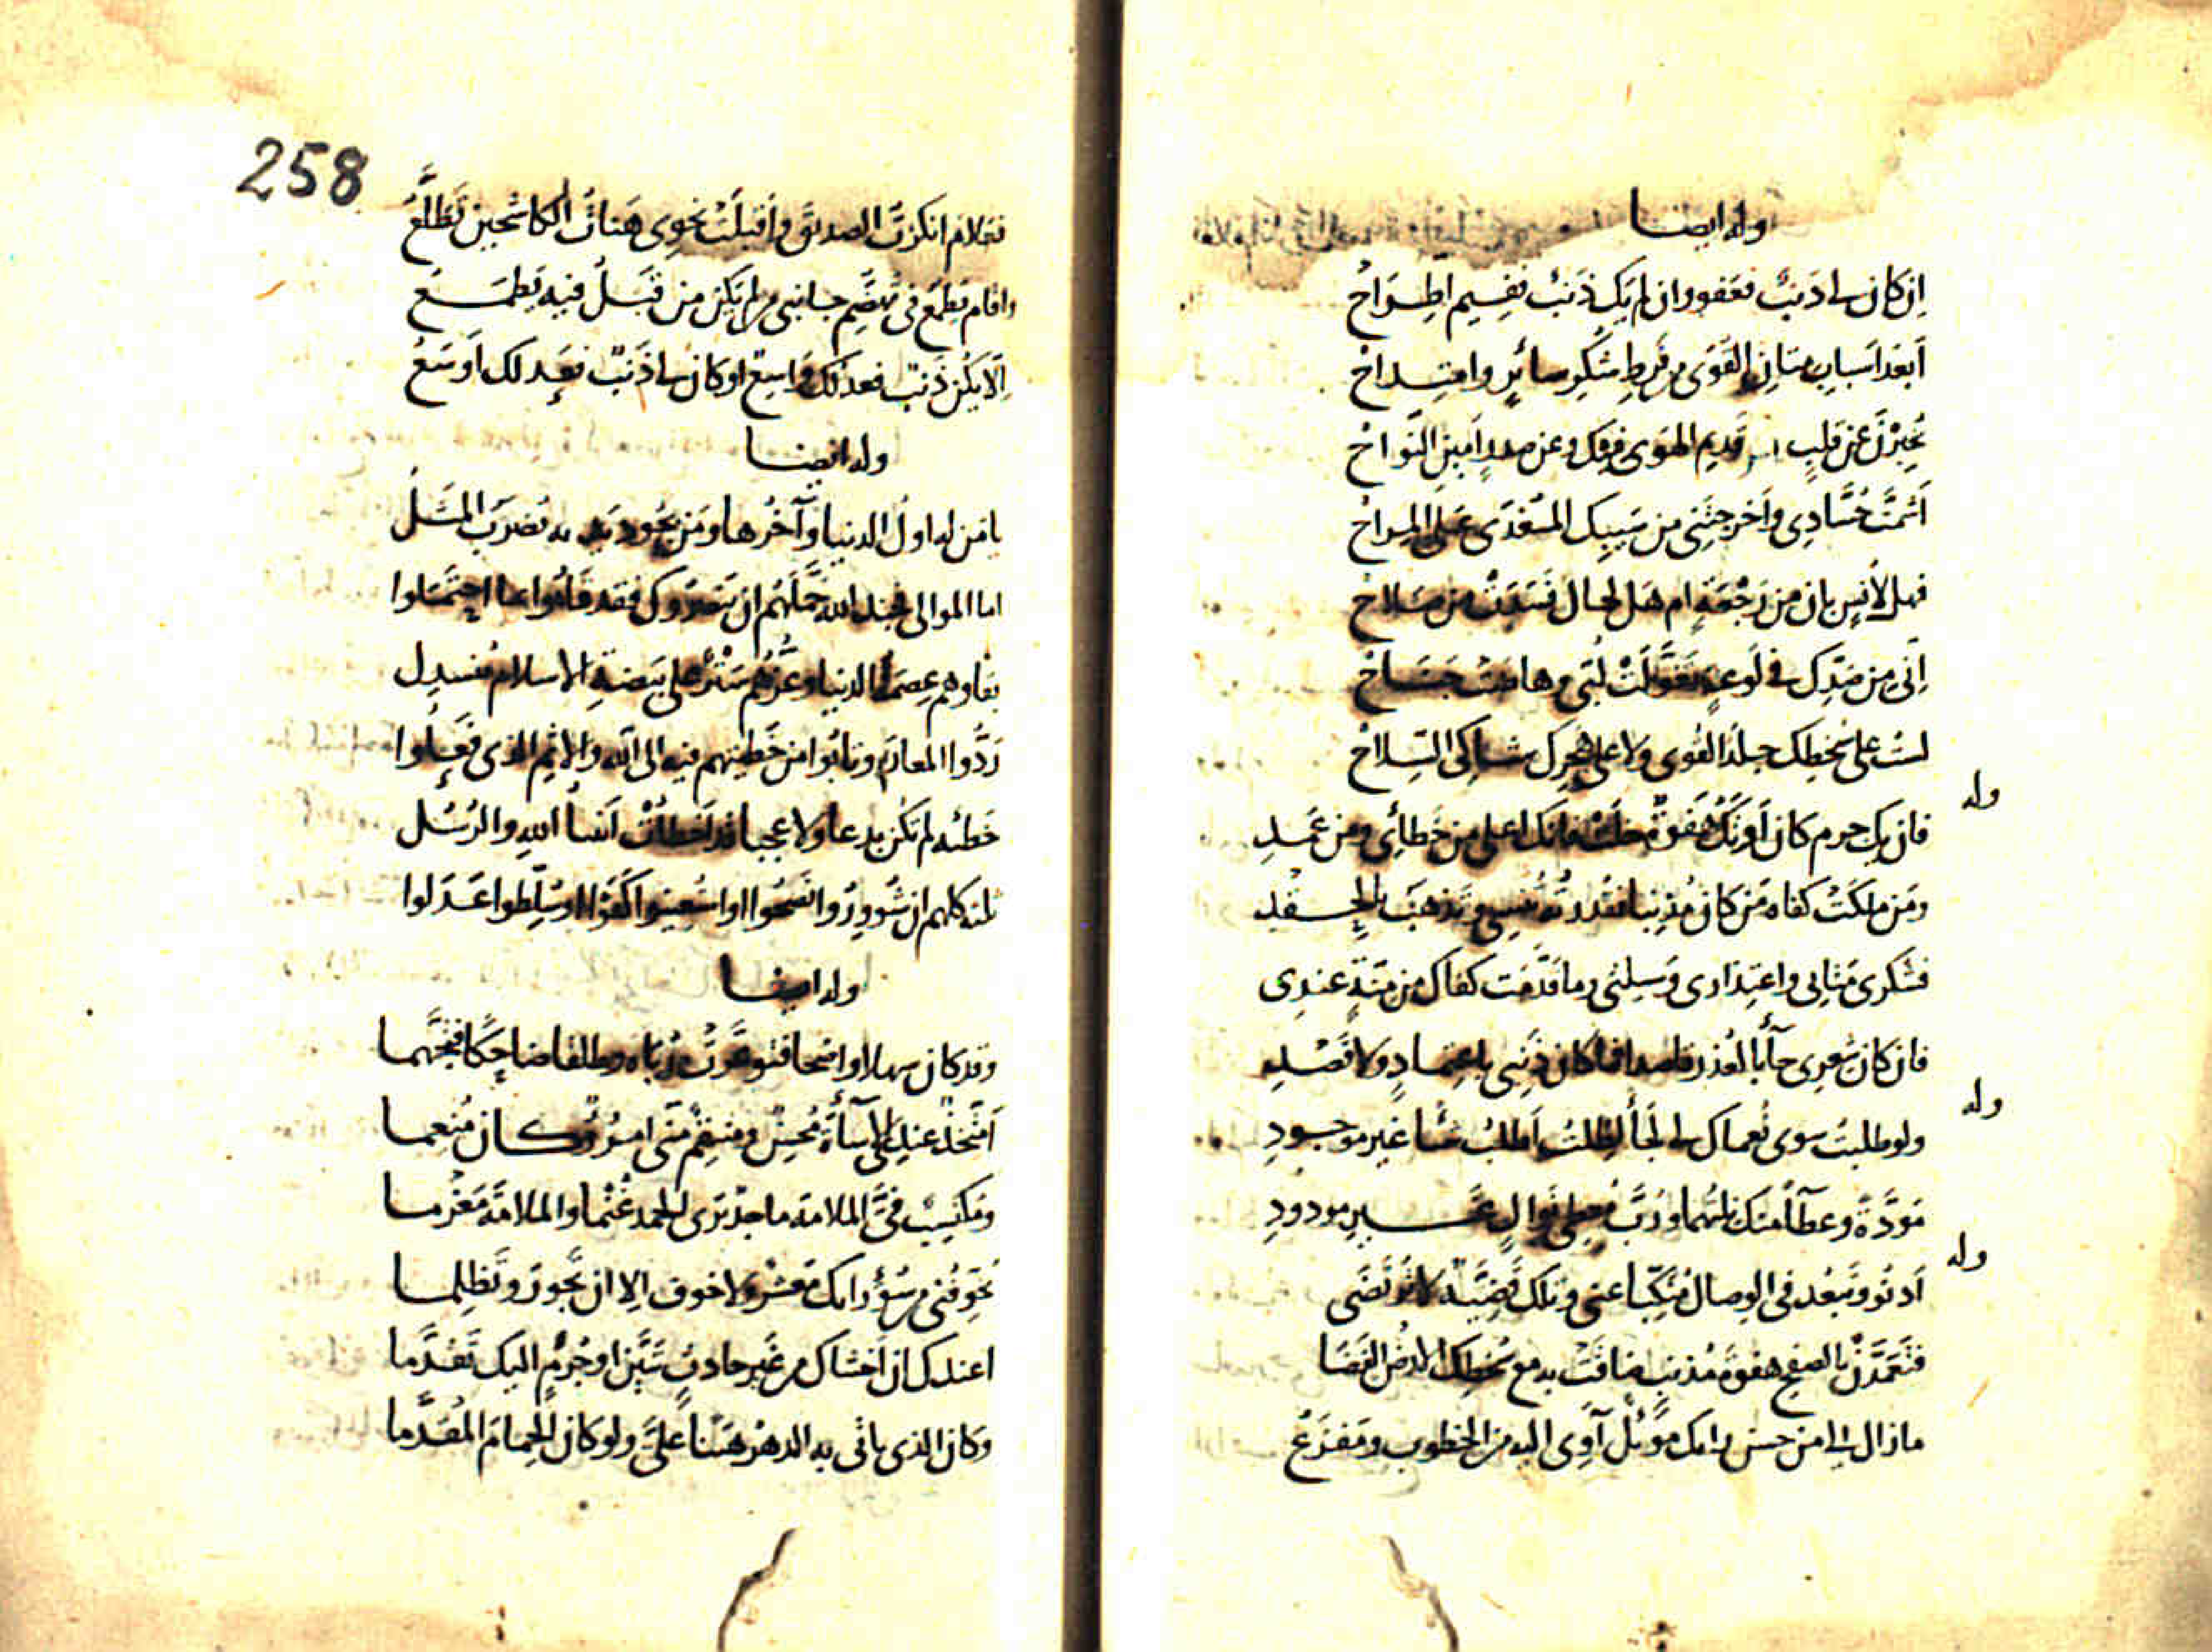 وله ايضا
إن كان لي ذنبٌ فعَفو وان لم يك ذَنبٌ ففيم اطِّراحْ
أبَعدَ اسبابٍ متانِ القُوَى من فَرطِ شُكرٍ سائرٍ وامتداحْ
يُخبِرنَ عن قلبٍ قديم الهوى فيك وعن صدرٍ أمينِ النَّواحْ
أشمَتَّ حُسَّادِى وأخرجتَنى من سَيبِك المُغدَى عَلىَ المراحْ
فهل لأنسٍ بان من رَجْعَةٍ ام هَل لحال فَسَدَتْ من صَلاحْ
إنّى من صَدّك في لَوعةٍ تغوَّلَتْ لُبّى وهاضَتْ جَناحْ
لستُ على سخطك جلدَ القُوى ولا على هجرك شاكى السِّلاحْ
وله
فان يك جرم كان أو تَكُ هفوةٌ خلَتْ فانك اعلى من خَطائِى ومن عَمدِ
ومَن ملكَتْ كفاه مَن كان مُذنِبا فقُدرتُه تُنسِى وتَذهبُ بالحِقْدِ
فشكرى مَثابى واعتِذارى وَسيلتى وما قدّمت كفاك من مِنّةٍ عندِى
فان كان شعرى جاء بالعُذر قاصدا فما كان ذَنبى باعتِمادٍ ولا قَصْدِ
وله
ولو طلبتُ سوى نُعماك لى لجأً لظلتُ اطلبُ شيأ غير موجودِ
مَودَّةً وعطآءً منك نِلتُهما ورُبَّ مُعطِى نوالٍ غيرِ مودودِ
وله
أدنُو وتَبعُد في الوِصال مُنكِّبا عنى وتلك قضيَّةٌ لا تُرتَضَى
فتَعَمَّدَنْ بالصفح هفوةَ مُذنبٍ ضاقَتْ به مع سُخطِك الارضُ الفَضَا
ما زال لى من حسن رأيك موئلٌ آوِى اليه من الخطوب ومَفزَعُ
258
فعَلامَ انكرْتَ الصديق وأقبلَتْ نحوِى هَناتُ الكاشحين تَطَلَّعُ
واقام يَطمَعُ فى تَهضُّمِ جانبى من لم يكن من قَبلُ فيه يَطمَعُ
إلّا يكن ذَنبٌ فعدلك واسعٌ او كان لى ذَنبٌ فعَدلك أوسَعُ
وله ايضا
يا مَن له اولُ الدنيا وآخرُها ومَن بجُودِ يَديه يُضرَبُ المثَلُ
اما الموالى فجند الله حَمَّلَهُم ان يَنصُروك فقد قامُوا بما احتَمَلوا
بقاوهم عِصمَةُ الدنيا وعِزُّهُم سِتْرٌ على بَيضَةِ الاسلام مُنسدِل
رَدُّوا المعارَ وتابُوا من خَطِيئَتهم فيه الى الله والاثم الذى فَعلوا
خَطئه لم تكن بدعا ولا عجبا قد أخطأَتْ أنبياءُ الله والرُسُل
ثلثه كلهم ان شُووِرُوا نصَحُوا او استُعينوا كفَوْا او سُلِّطوا عَدَلوا
وله ايضا
وقد كان سهلا واضحا فتوعَّرَتْ رُباه وطلقا ضاحِكًا فتَجَهَّما
أمتّخذٌ عندى الاساءةَ مُحسنٌ ومنتقمٌ منّى امرُؤٌ كان مُنعِما
ومكتَسِبٌ فيَّ الملامة ماجدٌ يَرى الحمدَ غُنْما والملامَةَ مَغْرَما
يُخَوّفُنى من سُؤِ رايك معشرٌ ولا خوف الا ان تَجورَ وتَظلِما
اعندك ان أخشاك من غَير حادثٍ تَبَيَّن او جُرمٍ اليك تقدَّما
وكان الذى ياتى به الدهرُ هيّناً علىَّ ولو كان الحِمامَ المُقَدَّما